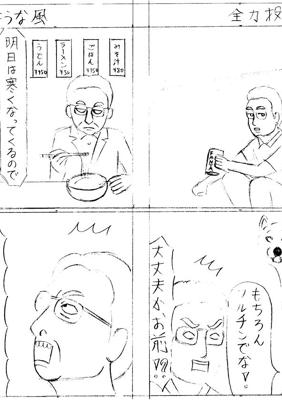 全力投
もちろん
フルチンでな♡
大丈夫か、お前!?
うな風
みそ汁
ごはん
ラーメン
うどん
明日は寒くなってくるので